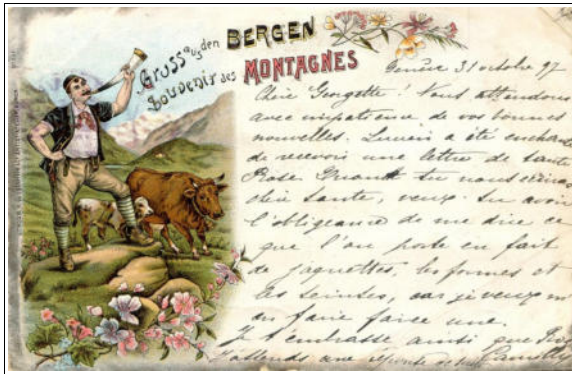 Gruss aus den BERGEN
Souvenir des MONTAGNES
Genève 31 octobre 97
Chère Georgette! Nous attendons
avec impatience de vos bonnes
nouvelles. Lucien a été enchanté
de recevoir une lettre de tante
Rose. Quand tu nous écriras
chère tante, veux-tu avoir
l'obligeance de me dire ce
que l'on porte en fait
de jaquettes, les formes et
les teintes, car je veux m'en
faire faire une.
Je t'embrasse ainsi que
J'attends une réponse de suite